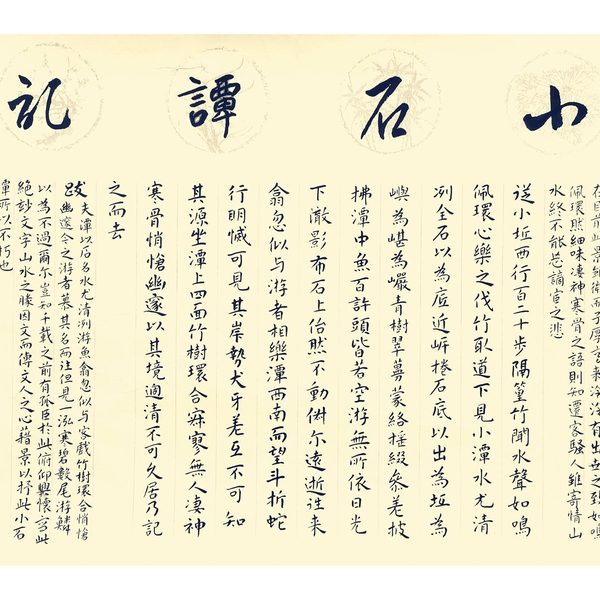 小石譚記
佩環然細味凄神寒骨之語則知遷客騷人雖寄情山
水終不能忘謫宦之悲
從小坵西行百二十步隔篁竹聞水聲如鳴
佩環心樂之伐竹取道下見小潭水尤清
冽全石以為底近岸捲石底以出為坻為
嶼為嵁為巖青樹翠蔓蒙絡搖綴參差披
拂潭中魚百許頭皆若空游無所依日光
下澈影布石上佁然不動俶尔遠逝往来
翕忽似与游者相樂潭西南而望斗折蛇
行明滅可見其岸勢犬牙差互不可知
其源坐潭上四面竹樹環合寂寥無人凄神
寒骨悄愴幽邃以其境過清不可久居乃記
之而去
跋 夫潭以石名水尤清冽游魚翕忽似与客戲竹樹環合悄愴
幽邃今之游者慕其名而往但見一泓寒碧數尾游鱗
以為不過爾尔豈知千載之前有孤臣於此俯仰興懷寫此
絕妙文字山水之勝因文而傳文人之心藉景以抒此小石
潭所以不朽也